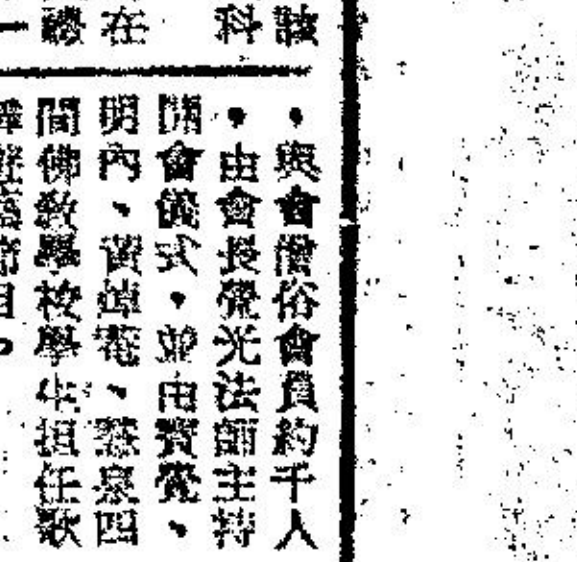 科
在
一
，與會僧俗會員約千人
，由會長覺光法師主持
開會儀式，並由寶覺、
明內、黃焯菴、慧泉四
間佛教學校學生担任歌
節目。